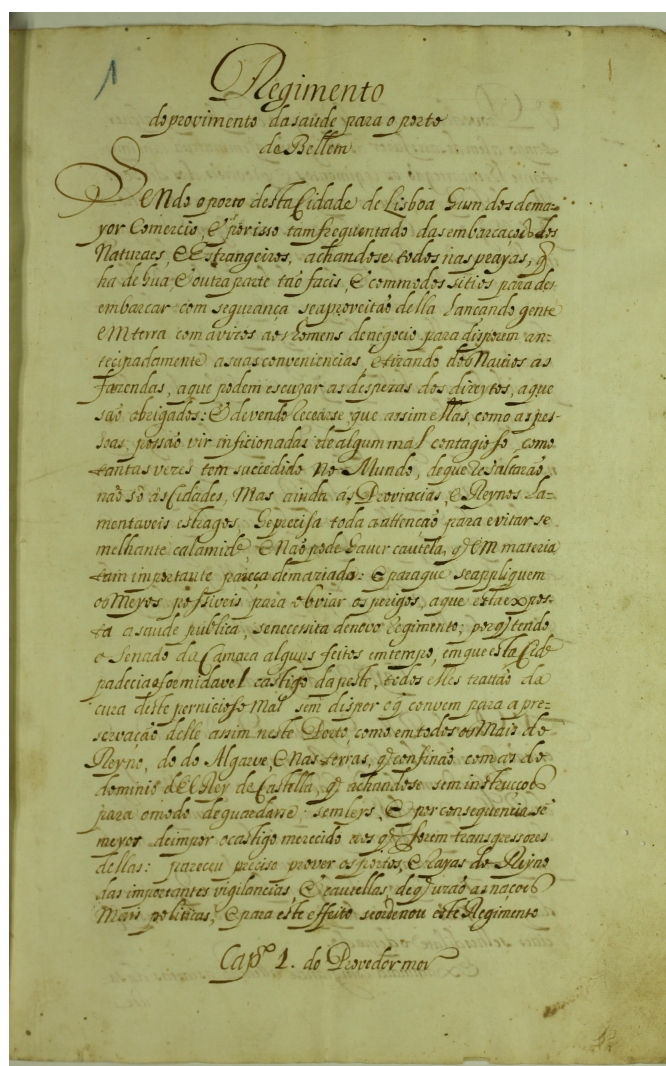 1
Regimento
do provimento da saude para o porto
de Bellem
Sendo o porto desta Cidade de Lisboa hum dos de ma-
yor Comercio, E por isso tam frequentado das embarcaçoes dos
Naturaes, E Estrangeiros, achandose todos nas prayas, q̃
ha de hũa E outra parte tão facis, E commodos sitios para des
embarcar com segurança se aproveitão della lançando gente
em terra com avizos aos homens de negocio para disporem an-
tecipadamente a suas conveniencias, E tirando dos Navios as
fazendas, a que podem escuzar as despezas dos direytos, a que
são obrigados: E devendo recearse que assim ellas, como as pes-
soas, possão vir inficionadas de algum mal contagioso como
tantas vezes tem succedido no Mundo, de que resaltarão
não só ás Cidades, Mas ainda as Provincias, E Reynos la-
mentaveis estragos, He precisa toda a attenção para evitar se
melhante calamide, E Não pode haver cautela, q̃ em materia
tam importante pareça demaziada: E para que se appliquem
os Meyos possiveis para obviar os perigos, a que esta expos-
ta a saude publica, se necessita de novo Regimento; porq̃ tendo
o Senado da Camara alguns feitos em tempo, em que esta Cide
padecia o formidavel castigo da peste, todos elles trattão da
cura deste pernicioso Mal sem dispor o q̃ convem para a pre-
servação delle assim neste Porto como em todos os Mais do
Reyno, do do Algarve, E Nas terras, q̃ confinão com as do
dominio del Rey de Castella, q̃ achandose sem instrucções
para o modo de guardarse, sem leys, E por consequencia sẽ
meyos de impor o castigo merecido aos q̃ forem transgressores
dellas: pareceu preciso prover os portos, E Rayas do Reyno
das importantes vigilancias, E cautellas, de q̃ uzão as nações
Mais politicas, E para este effeito se ordenou este Regimento
Capº 1. do Provedor mor